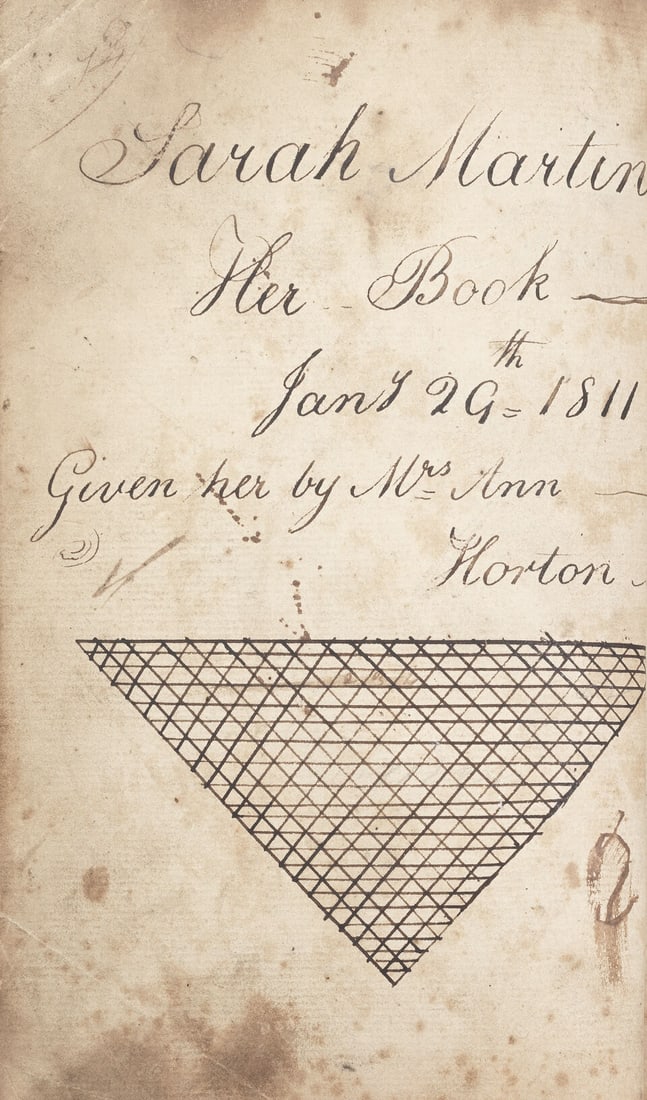 Sarah Martin
Her Book
Jany 29th 1811
Given her by Mrs Ann
Horton